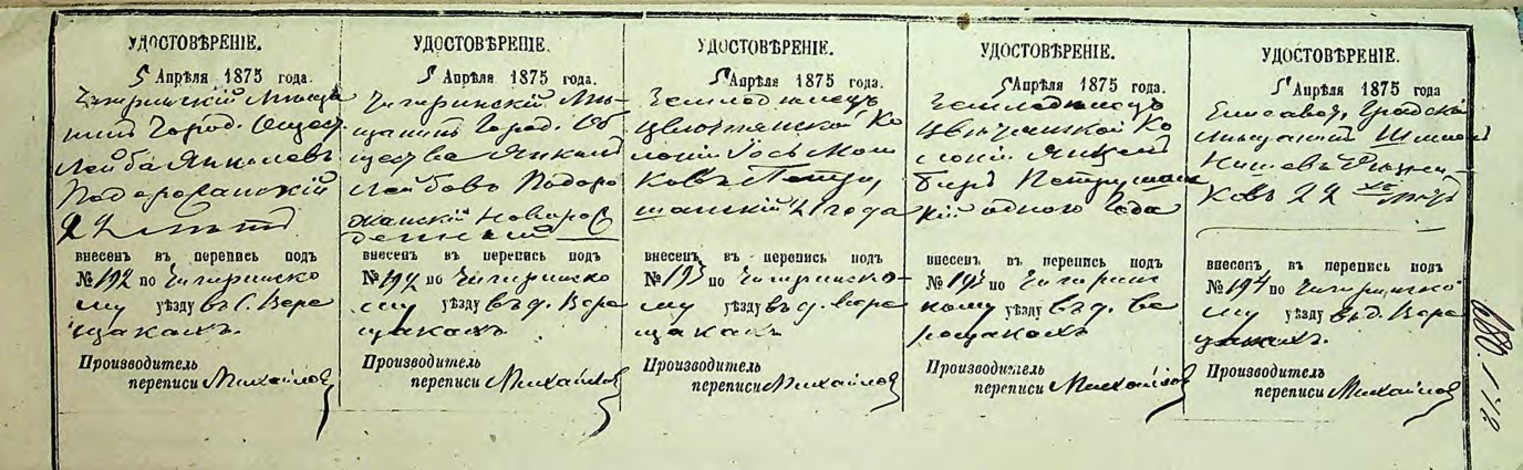 УДОСТОВѢРЕНІЕ.
5 Апрѣля 1875 года.
Чигиринскій Мѣща
нинъ Город. Общест.
Лейба Янкелевъ
Подорожанскій
22 лѣтъ
внесенъ въ перепись подъ
№ 192 по Чигиринско
му уѣзду въ С. Вере
щакахъ.
Производитель
переписи Михайлов
УДОСТОВѢРЕНІЕ.
5 Апрѣля 1875 года.
Чигиринскій Мѣ-
щанинъ Город. Об
щества Янкель
Лейбовъ Подоро
жанскій Новорож
денный
внесенъ въ перепись подъ
№ 192 по Чигиринско
му уѣзду въ д. Вере
щакахъ.
Производитель
переписи Михайлов
УДОСТОВѢРЕНІЕ.
5 Апрѣля 1875 года.
Земледѣлецъ
Ко
лоніи Іось Мош
ковъ Петру
шанскій года
внесенъ въ перепись подъ
№ 193 по Чигиринско-
му уѣзду въ д. Вере
щакахъ
Производитель
переписи Михайлов
УДОСТОВѢРЕНІЕ.
5 Апрѣля 1875 года.
Земледѣлецъ
Ко
лоніи Янкель
Беръ Петрушан
кій одного Года
внесенъ въ перепись подъ
№ 193 по Чигирин
кому уѣзду въ д. Ве
рещакахъ
Производитель
переписи Михайлов
УДОСТОВѢРЕНІЕ.
5 Апрѣля 1875 года
Елисавет. Градскій
мѣщанинъ
22
внесенъ въ перепись подъ
№ 194 по Чигиринско
му уѣзду въ д. Вере
щакахъ.
Производитель
переписи Михайлов